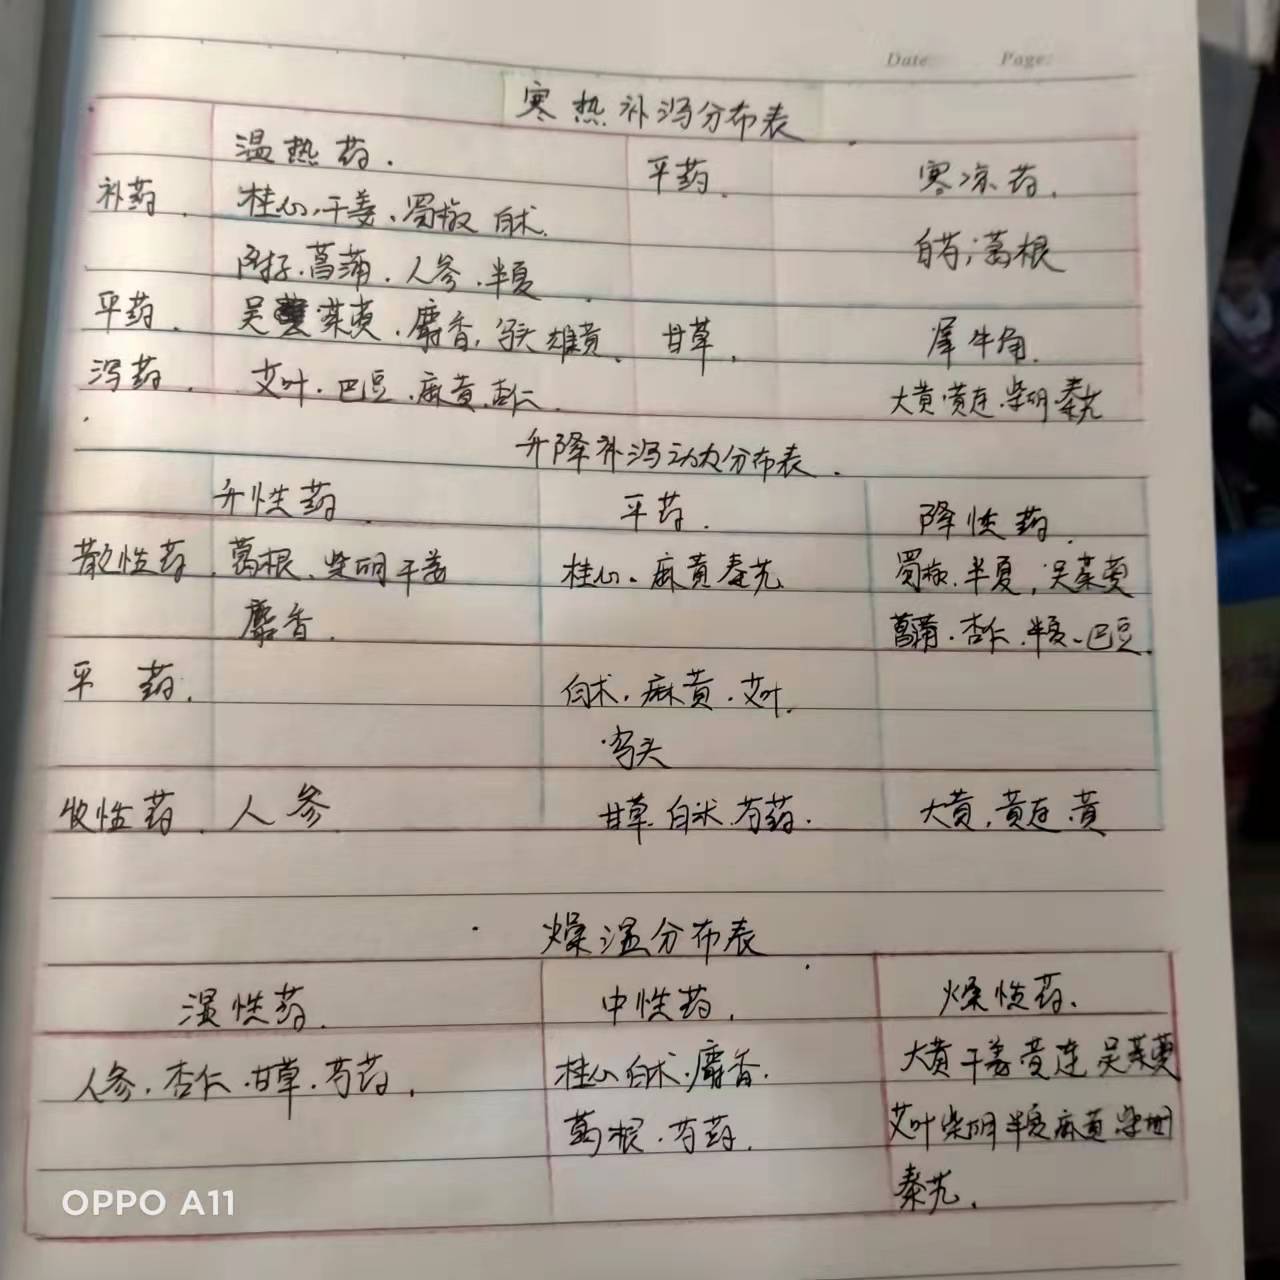 Date: Page:
寒热补泻分布表
温热药. 平药. 寒凉药.
补药. 桂心、干姜、蜀椒 白术.
附子.菖蒲.人参.半夏 白芍;葛根
平药. 吴茱萸.麝香, 雄黄. 甘草. 犀牛角.
泻药. 艾叶.巴豆.麻黄.杏仁. 大黄.黄连.柴胡.秦艽
升降补泻动力分布表.
升性药. 平药. 降性药.
散性药. 葛根、柴胡 干姜 桂心、麻黄 秦艽 蜀椒.半夏,吴茱萸
麝香. 菖蒲.杏仁.半夏、巴豆.
平 药. 白术.麻黄.艾叶.
.乌头
收性药. 人参 甘草.白术.芍药. 大黄,黄连.黄
燥湿分布表
湿性药. 中性药. 燥性药.
人参.杏仁.甘草.芍药. 桂心 白术.麝香. 大黄 干姜 黄连 吴茱萸
葛根.芍药. 艾叶 柴胡 半夏 麻黄 柴胡
秦艽.
OPPO A11